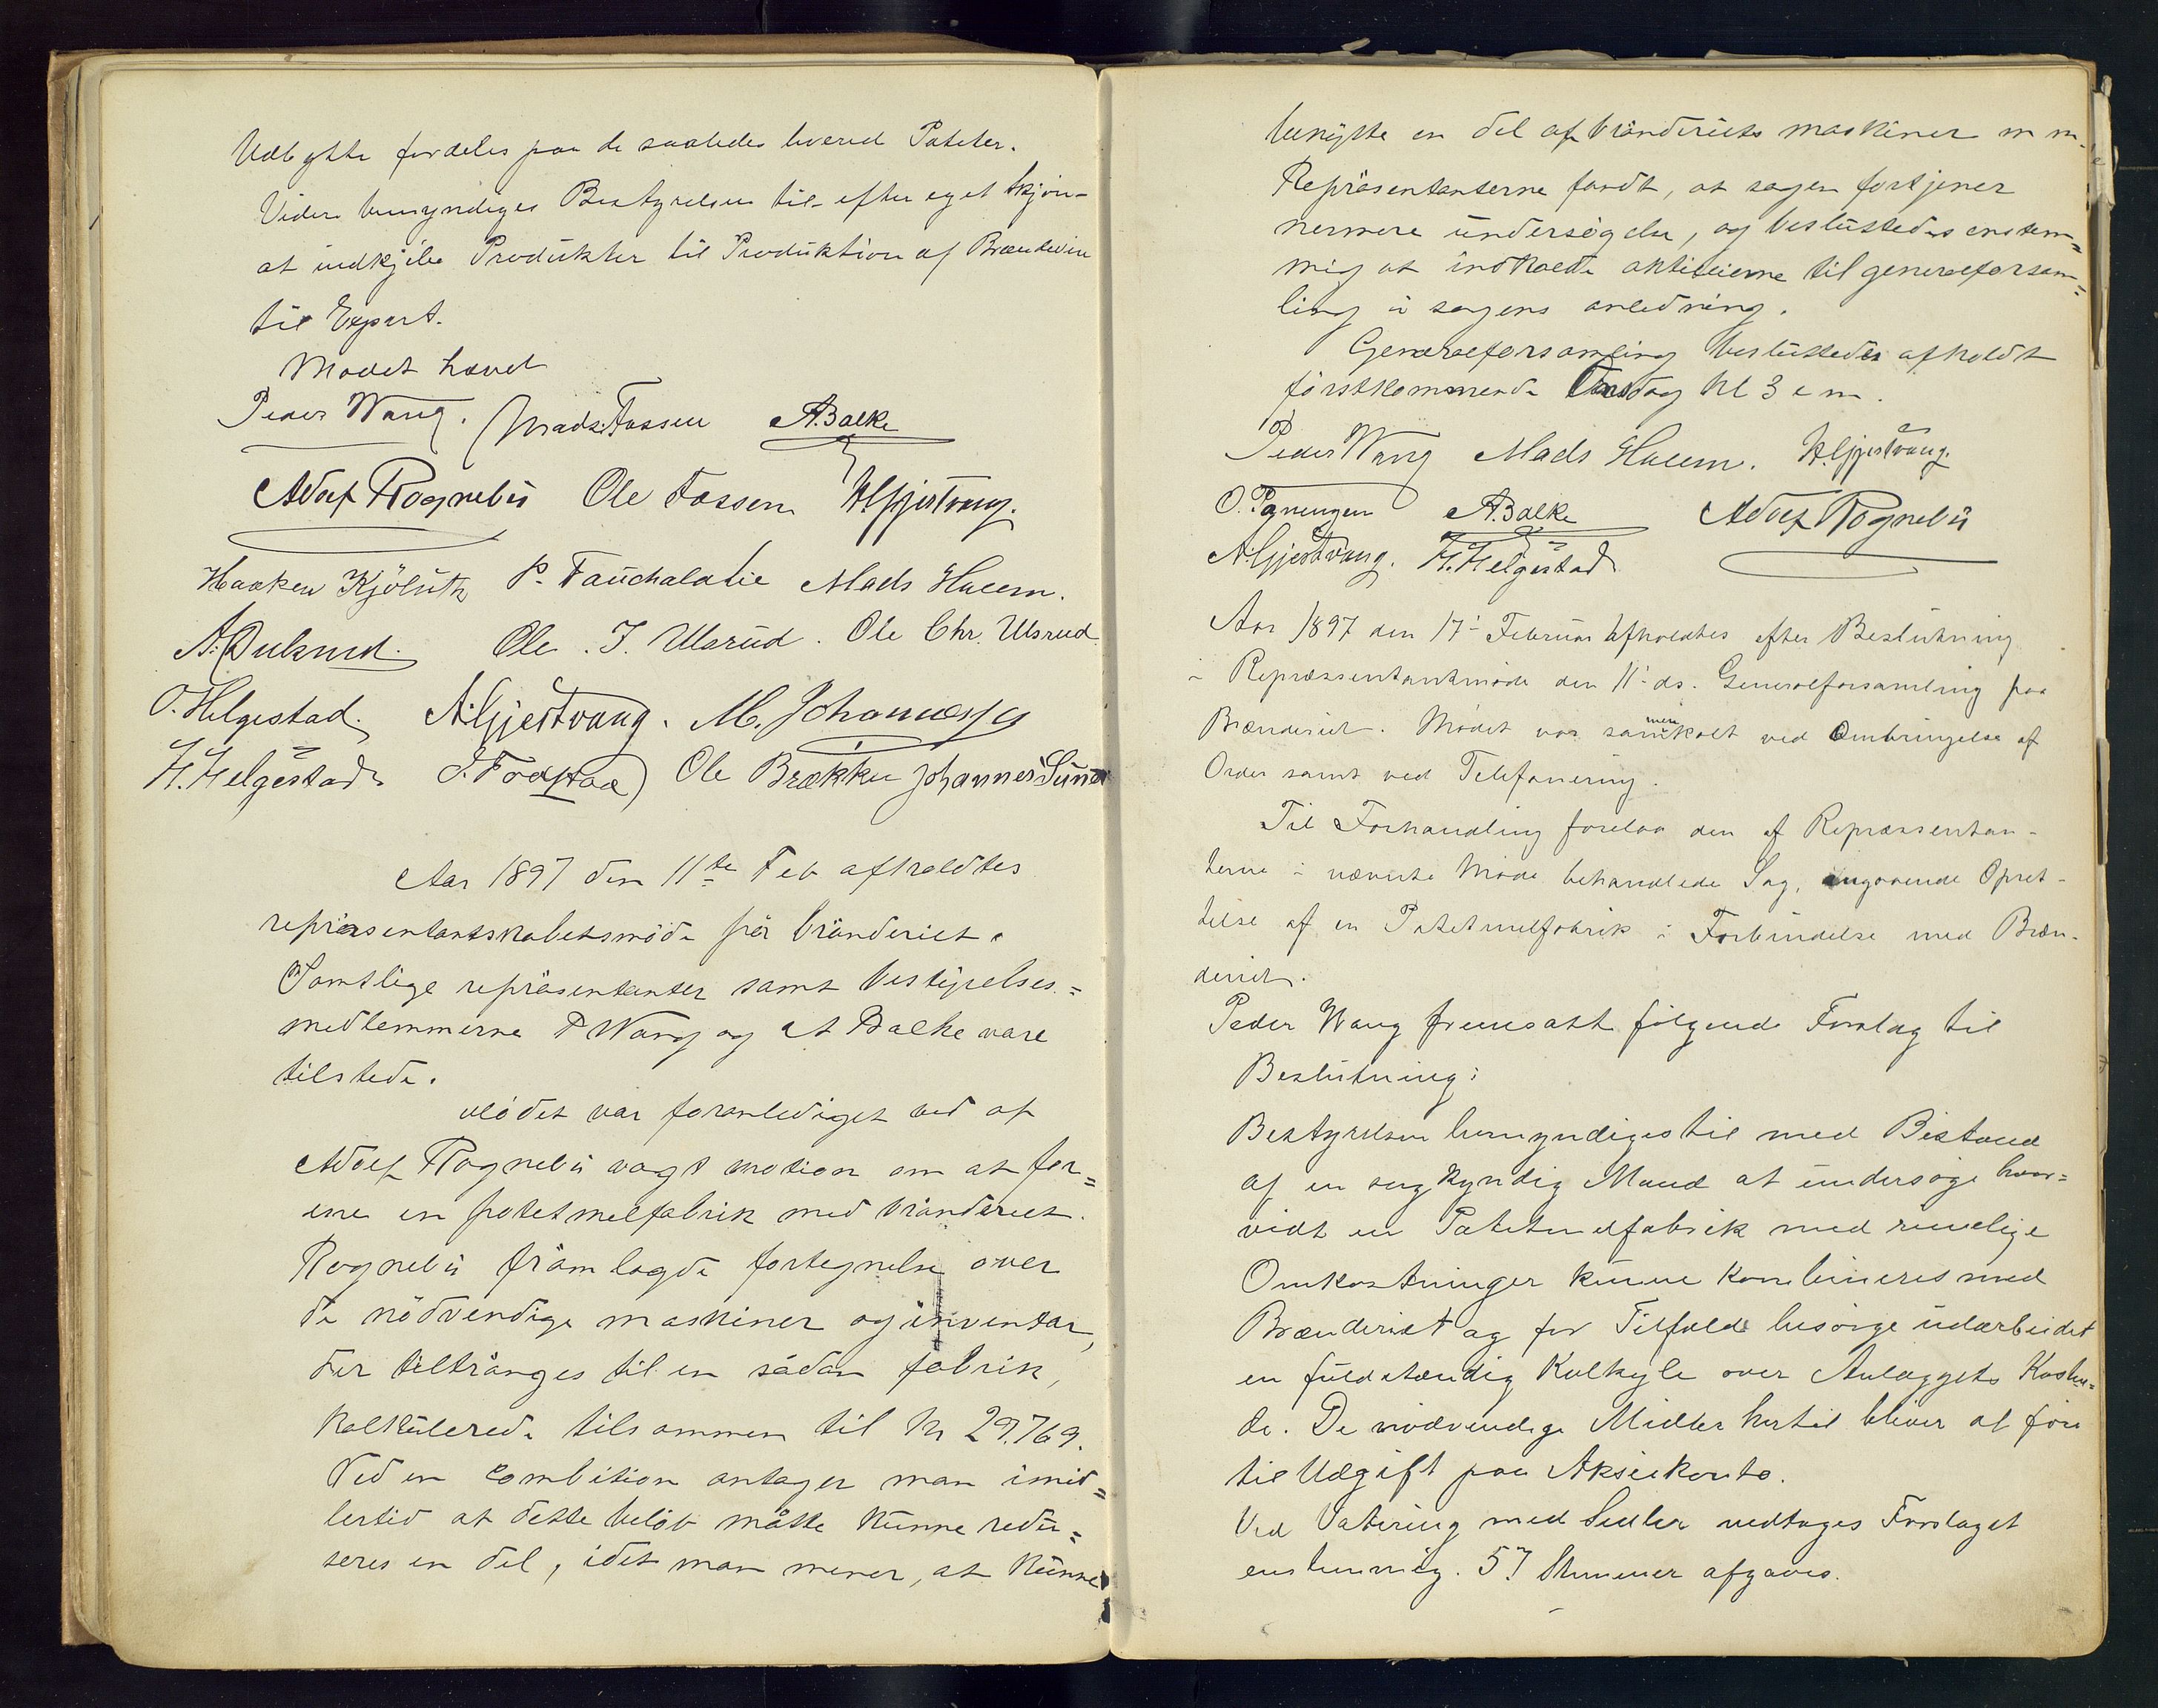 Udbytte fordeles paa de saaledes levered Poteter.
Videre bemyndiges Bestyrelsen til efter eget skjøn
at indkjøbe Produkter til Produktion af Brændevin
til Export.
Mødet hævet
Peder Wang. Mads Fossen A. Balke
Adolf Rognebü Ole Fossen H. Gjestvang.
Haaken Kjölseth P. Fauchaldlie Mads Hveem.
A. Ouksrud. Ole J. Ulsrud. Ole Chr. Ulsrud
O. Helgestad. A. Gjestvang. M. Johannessen
H. Helgestad. Ole Brække Johannes Sund
Aar 1897 den 11te Feb afholdtes
repräsentantskabetsmöde på bränderiet.
Samtlige repräsentanter samt bestyrelses=
medlemmerne P Wang og At Balke vare
tilstede.
Mödet var foranlediget ved af
Adolf Rognebü vagt motion om at for=
ene en potetmelfabrik med bränderiet.
Rognebü främlagde fortegnelse over
de nödvendige maskiner og inventar,
der tiltränges til en sådan fabrik,
kalkülerede tilsammen til Kr 29.769.
Ved en combition antager man imid=
lertid at dette belöb måtte künne redü=
seres en del, idet man mener, at künne
benytte en del af bränderiets maskiner m m.
Repräsentanterne fandt, at sagen fortjener
nermere ündersögelse, og beslüttedes enstem=
mig at indkalde aktieeierne til generalforsam=
ling i sagens anledning.
Generalforsamling beslüttedes afholdt
förstkommende Onsdag kl 3 e m.
Peder Wang Mads Hveem. H. Gjestvang.
O. Pgnengen A. Balke Adolf Rognebü
A. Gjestvang. H. Helgestad
Aar 1897 den 17' Februar afholdtes efter Beslutning
i Repræssentantmøde den 11' ds. Generalforsamling paa
Brænderiet. Mødet var sammenkalt ved Ombringelse af
Order samt ved Telefonering.
Til Forhandling forelaa den af Repræssentan-
terne i nævnte Møde behandlede Sag, angaaende Opret-
telse af en Potetmelfabrik i Forbindelse med Bræn-
deriet.
Peder Wang fremsatte følgende Forslag til
Beslutning:
Bestyrelsen bemyndiges til med Bistand
af en sagkyndig Mand at undersøge hvor=
vidt en Potetmelfabrik med rimelige
Omkostninger kunne kombineres med
Brænderiet og for Tilfælde besørge udarbeidet
en fuldstændig Kalkyle over Anlæggets Kosten=
de. De nødvendige Midler hertil bliver at føre
til Udgift paa Aksiekonto.
Ved Votering med Sedler vedtoges Forslaget
enstemmig. 57 Stemmer afgaves.